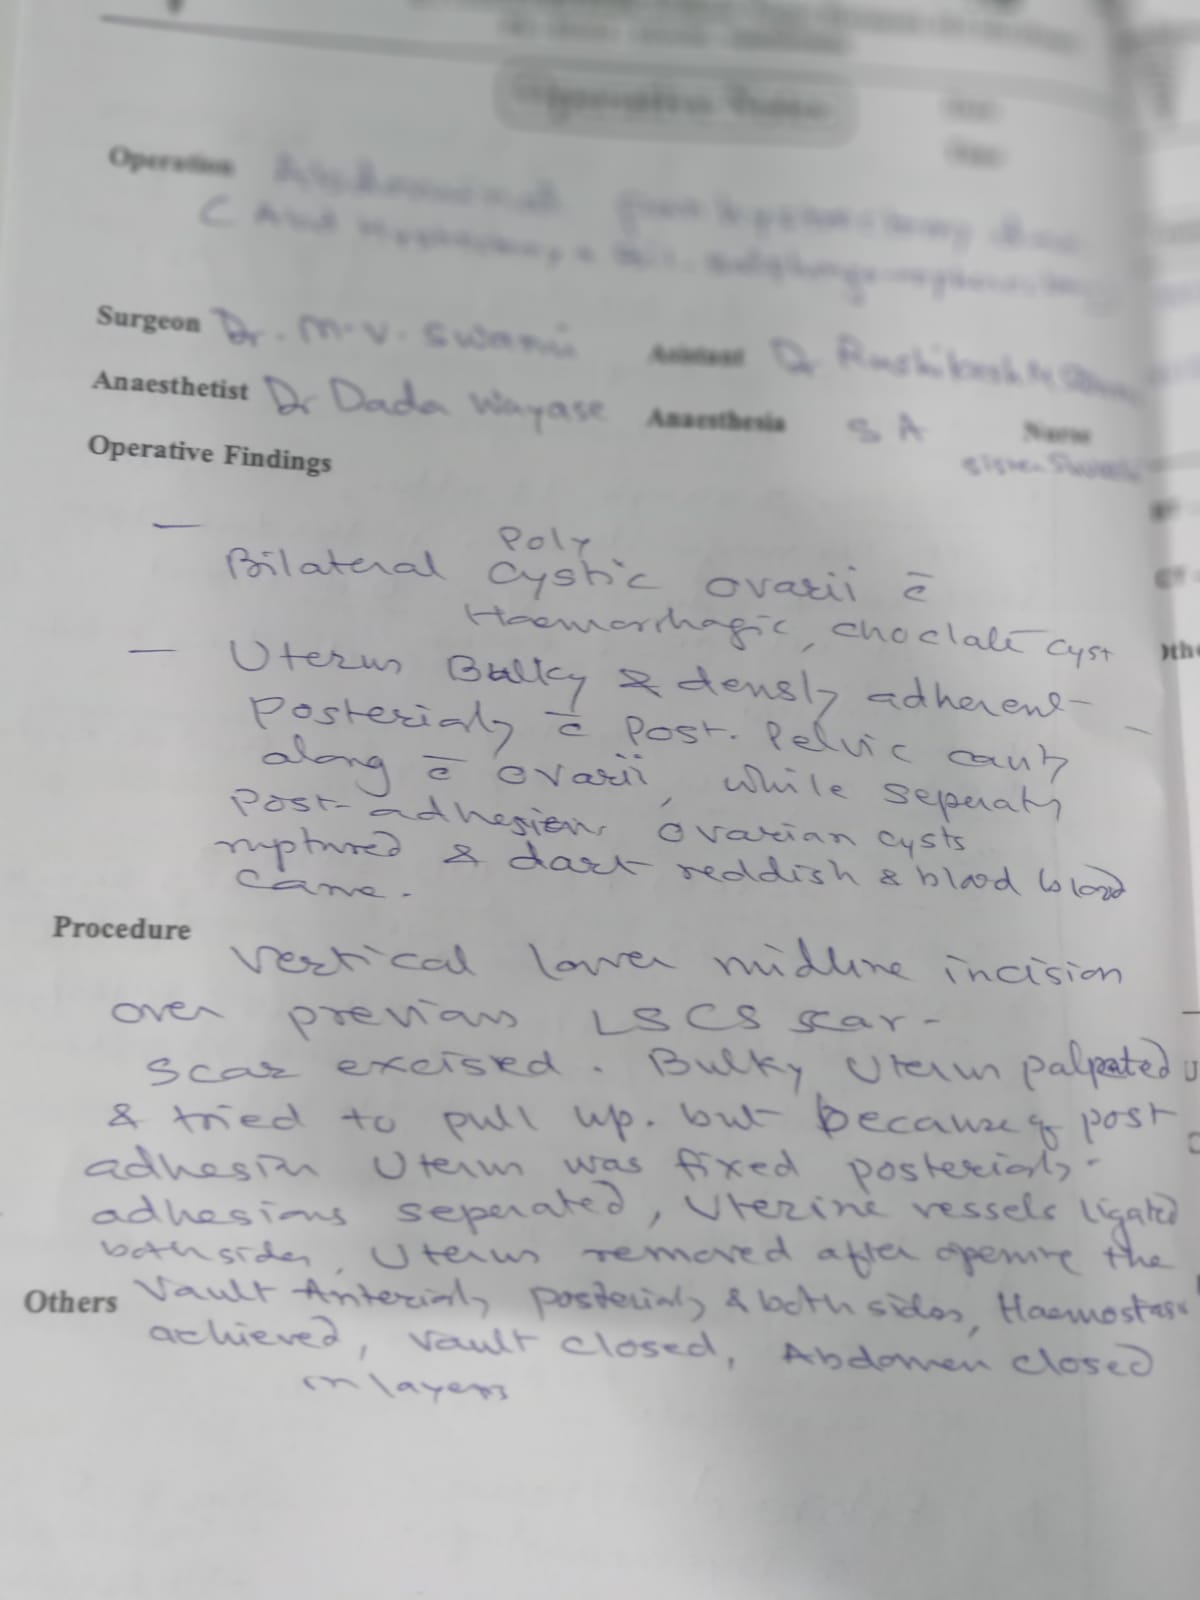 Operative Notes
Operation Abdominal
Surgeon Dr. M.V. Swami Asistant Dr
Anaesthetist Dr Dada Wayase Anaesthesia S A Nurse
Sister
Operative Findings
— Poly
Bilateral Cystic ovarii c̄
Haemorrhagic, choclate cyst
— Uterus Bulky & densly adherent
posterialy c̄ post. pelvic cavity
along c̄ ovarii, while seperatg
post-adhesion, ovarian cysts
ruptured & dark reddish & blood blood
came.
Procedure
Vertical lower midline incision
over previous LSCS scar-
scar excised. Bulky Uterus palpated
& tried to pull up. but because of post
adhesin Uterus was fixed posterialy.
adhesions seperated, Uterine vessels ligated
both sides, Uterus removed after opening the
Others Vault Anterialy posterialy & both sides, Haemostasis
achieved, Vault closed, Abdomen closed
in layers